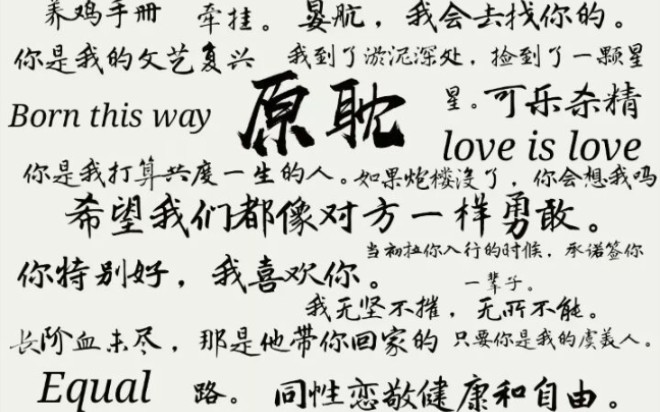 养鸡手册
牵挂。
晏航，我会去找你的。
你是我的文艺复兴
我到了淤泥深处，捡到了一颗星
星。
Born this way
原耽
可乐杀精
love is love
你是我打算共度一生的人。
如果炮楼没了，你会想我吗
希望我们都像对方一样勇敢。
当初拉你入行的时候，承诺签你
一辈子。
你特别好，我喜欢你。
我无坚不摧，无所不能。
长阶血未尽，那是他带你回家的
路。
只要你是我的虞美人。
Equal
同性恋敬健康和自由。